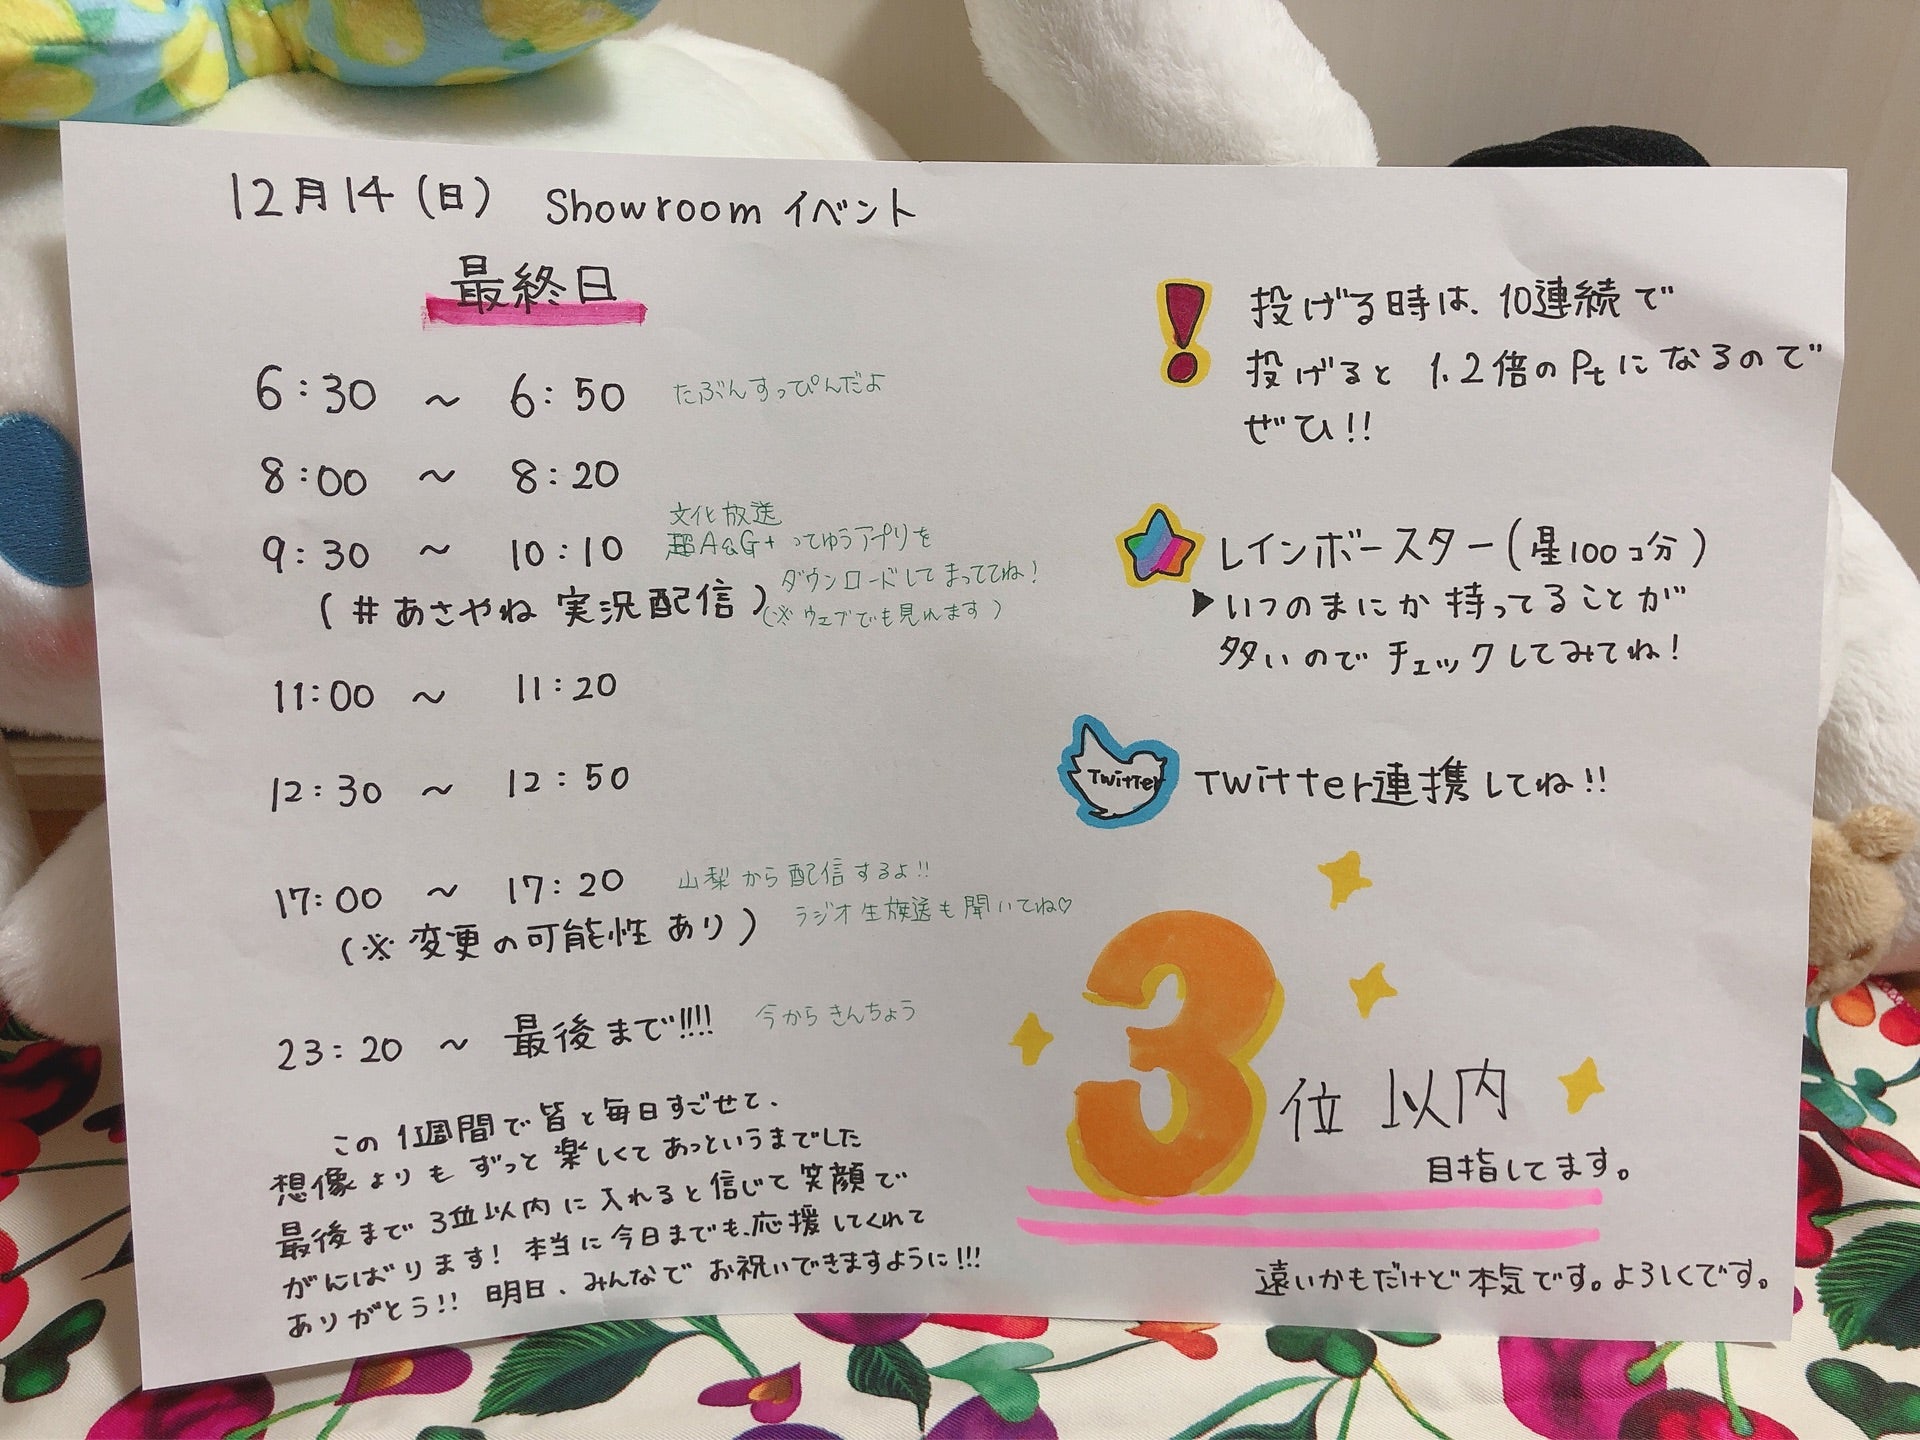 12月14(日) Showroom イベント
最終日
6:30 ~ 6:50 たぶんすっぴんだよ
8:00 ~ 8:20
9:30 ~ 10:10 文化放送
超A&G+ ってゆうアプリを
ダウンロードしてまっててね!
(※ウェブでも見れます)
(#あさやね 実況配信)
11:00 ~ 11:20
12:30 ~ 12:50
17:00 ~ 17:20 山梨から配信するよ!!
(※変更の可能性あり) ラジオ生放送も聞いてね♡
23:20 ~ 最後まで!!!! 今からきんちょう
この1週間で皆と毎日すごせて、
想像よりもずっと楽しくてあっというまでした
最後まで3位以内に入れると信じて笑顔で
がんばります! 本当に今日までも、応援してくれて
ありがとう!! 明日、みんなでお祝いできますように!!!
! 投げる時は、10連続で
投げると 1.2倍のPtになるので
ぜひ!!
レインボースター(星100コ分)
▶いつのまにか持ってることが
多いのでチェックしてみてね!
Twitter Twitter連携してね!!
3位以内
目指してます。
遠いかもだけど本気です。よろしくです。